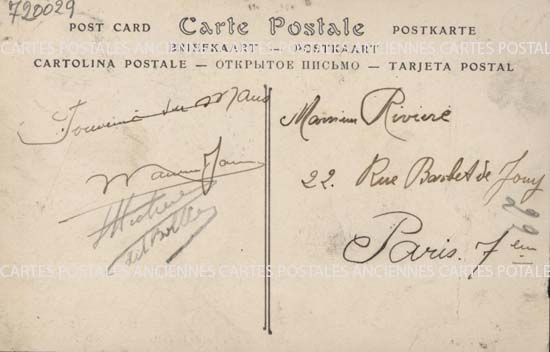 720029
POST CARD Carte Postale POSTKARTE
BRIEFKAART — POSTKAART
CARTES POSTALES ANCIENNES CARTES POSTALES ANCIENNES CARTES POSTALES
CARTOLINA POSTALE — ОТКРЫТОЕ ПИСЬМО — TARJETA POSTAL
Souvenir du Mans
Monsieur Rivière
22. Rue Barbet de Jouy
22
Paris. 7em
CARTES POSTALES ANCIENNES CARTES POSTALES ANCIENNES CARTES POSTALES